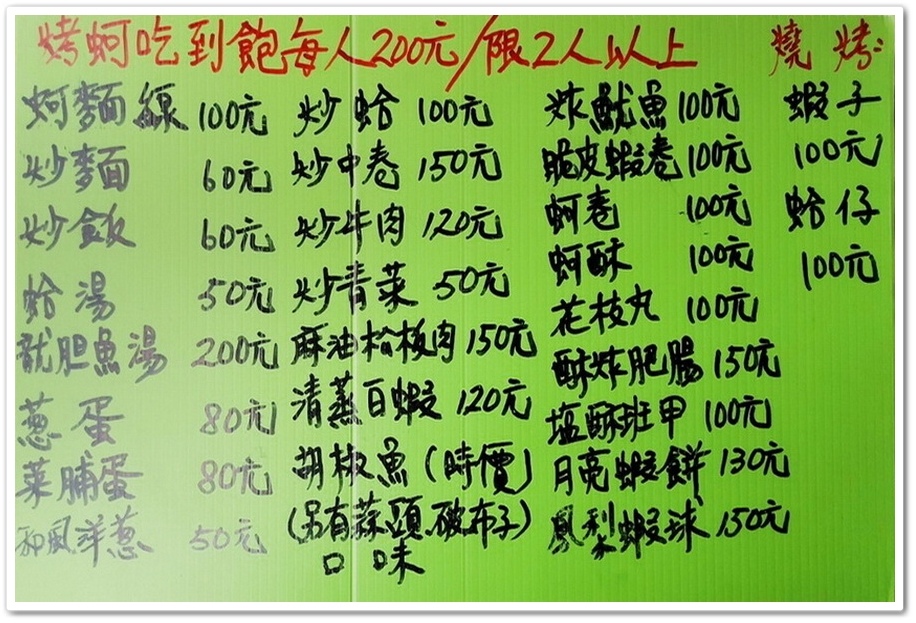 烤蚵吃到飽每人200元/限2人以上
蚵麵線 100元
炒麵 60元
炒飯 60元
蛤湯 50元
龍胆魚湯 200元
蔥蛋 80元
菜脯蛋 80元
和風洋蔥 50元
炒蛤 100元
炒中卷 150元
炒牛肉 120元
炒青菜 50元
麻油松板肉 150元
清蒸白蝦 120元
胡椒魚(時價)
(另有蒜頭.破布子)
口味
炸魷魚 100元
脆皮蝦卷 100元
蚵卷 100元
蚵酥 100元
花枝丸 100元
酥炸肥腸 150元
塩酥班甲 100元
月亮蝦餅 130元
鳳梨蝦球 150元
燒烤
蝦子
100元
蛤仔
100元